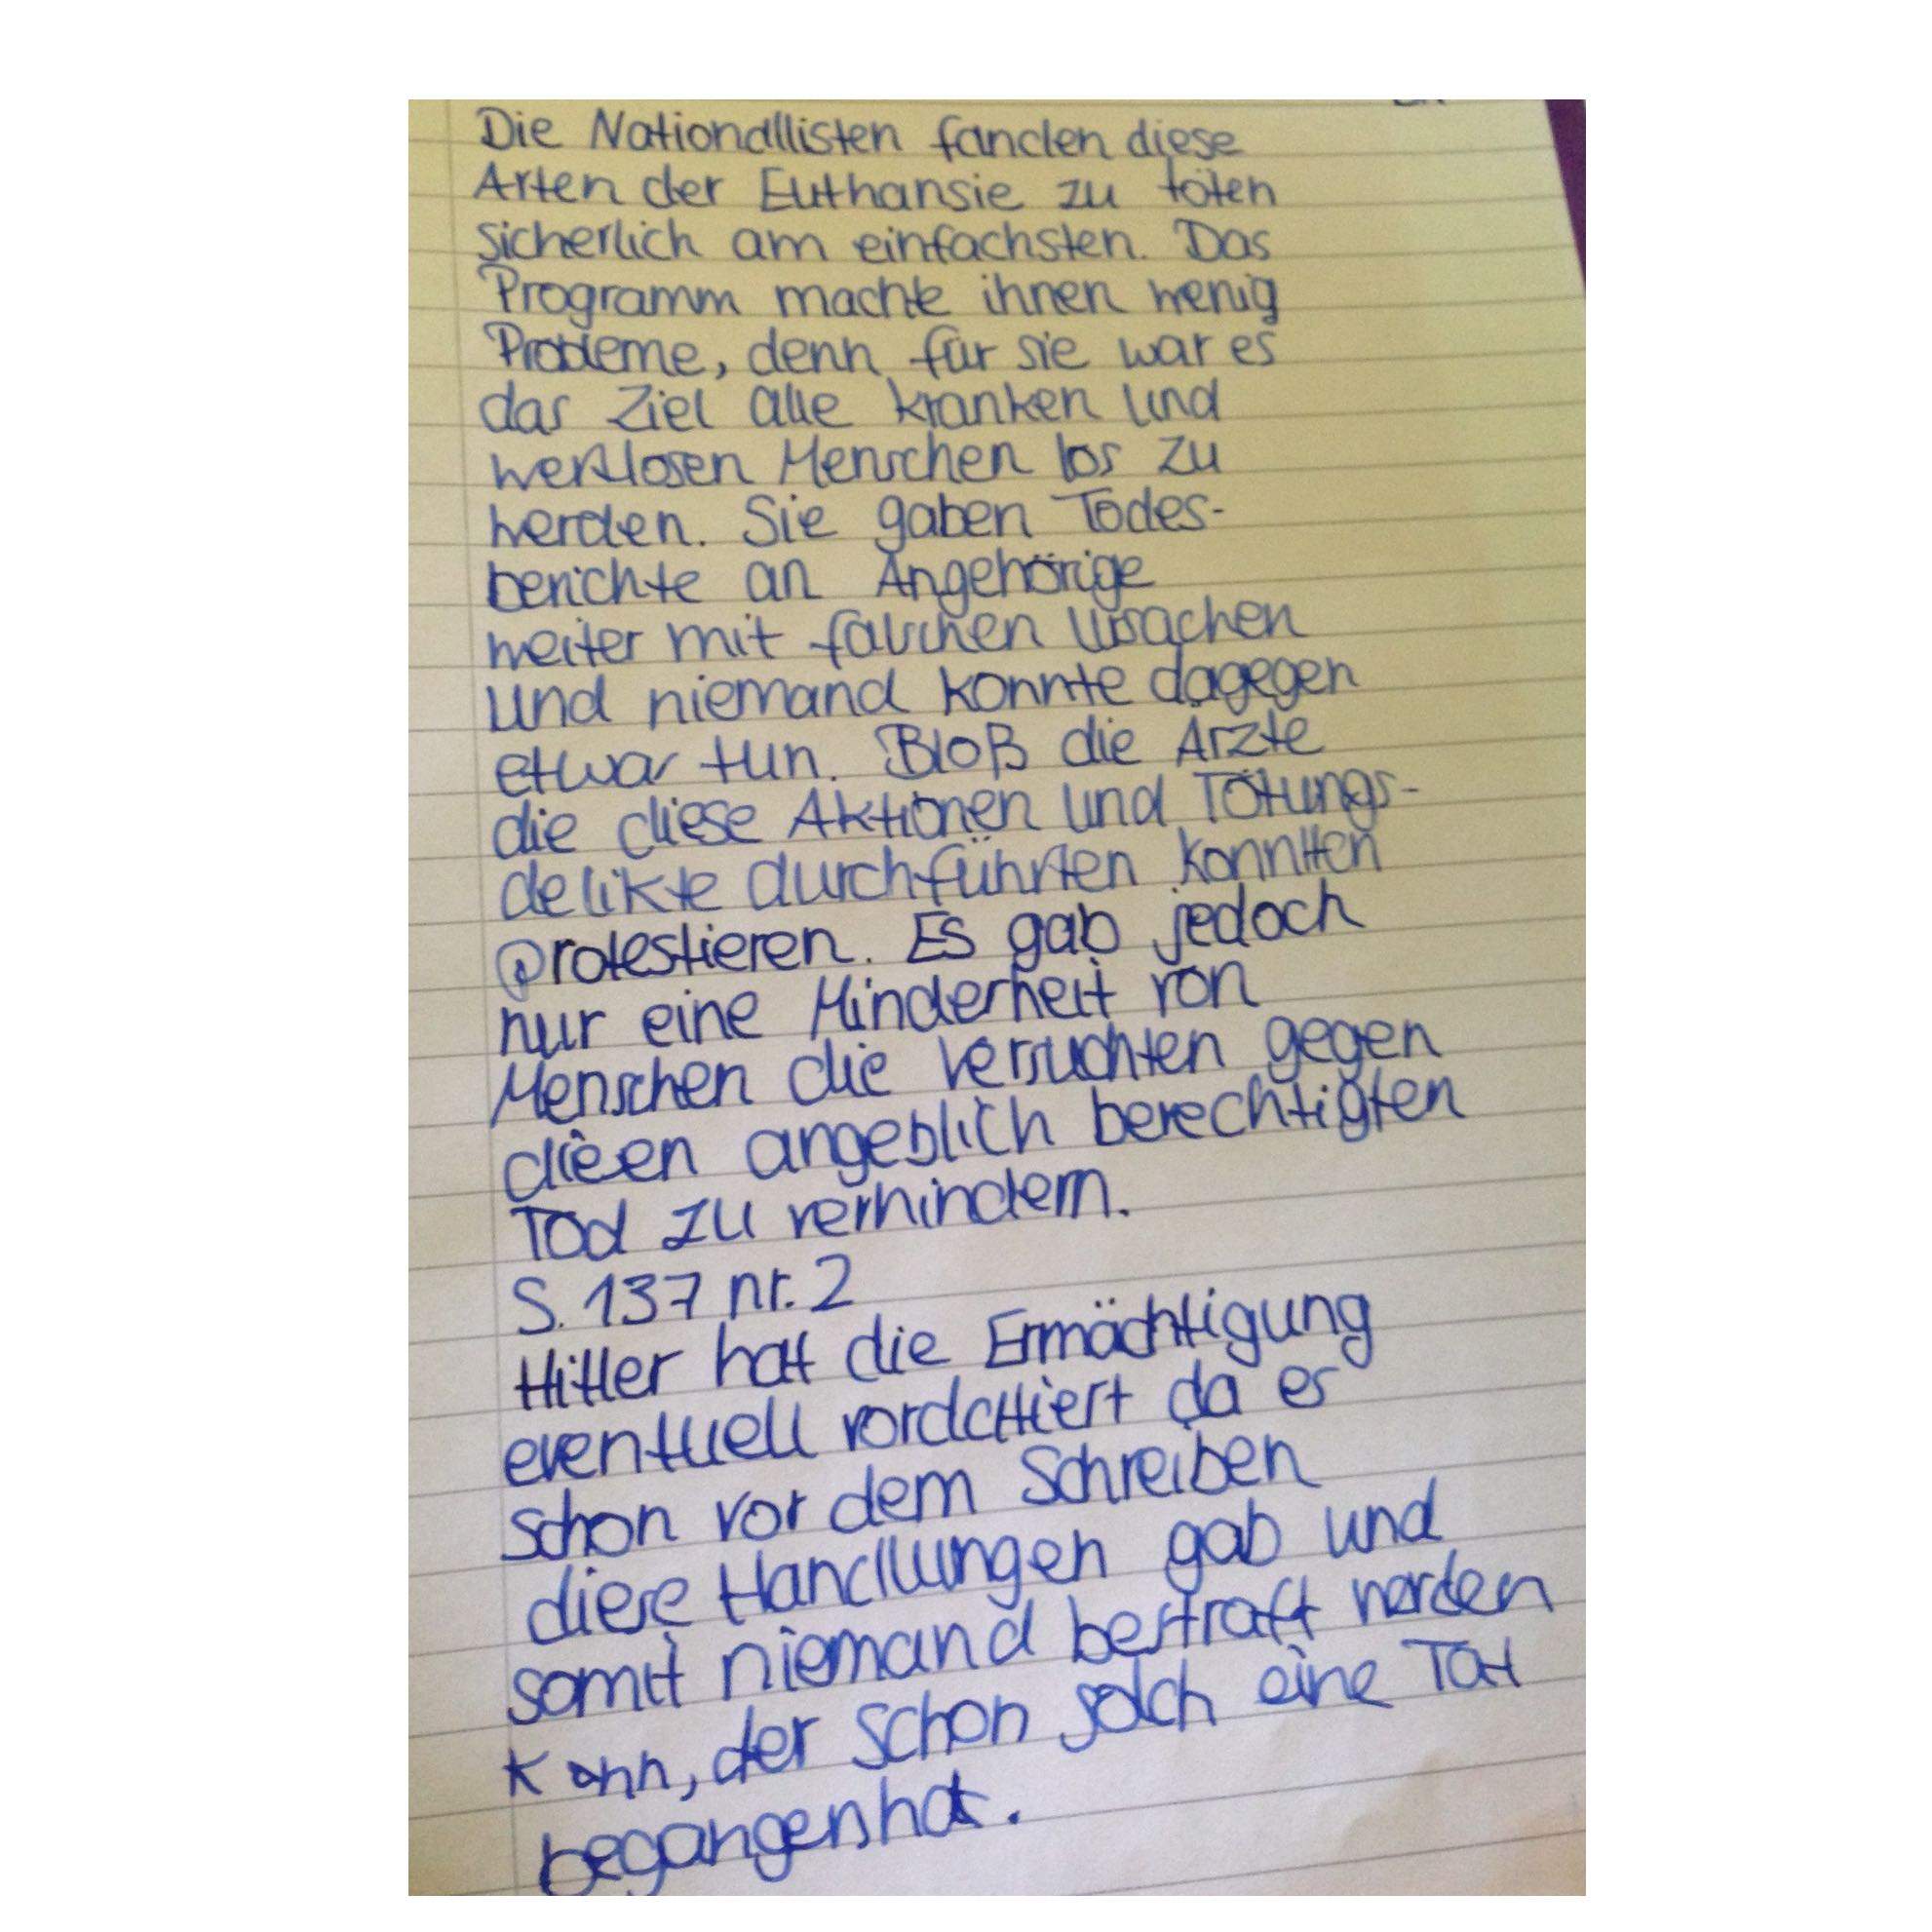 Die Nationallisten fanden diese
Arten der Euthansie zu töten
sicherlich am einfachsten. Das
Programm machte ihnen wenig
Probleme, denn für sie war es
das Ziel alle kranken und
wertlosen Menschen los zu
werden. Sie gaben Todes-
berichte an Angehörige
weiter mit falschen Ursachen
und niemand konnte dagegen
etwas tun. Bloß die Ärzte
die diese Aktionen und Tötungs-
delikte durchführten konnten
protestieren. Es gab jedoch
nur eine Minderheit von
Menschen die versuchten gegen
dieen angeblich berechtigten
Tod zu verhindern.
S. 137 nr. 2
Hitler hat die Ermächtigung
eventuell vordatiert da es
schon vor dem Schreiben
diese Handlungen gab und
somit niemand bestraft werden
kann, der schon solch eine Tat
begangen hat.